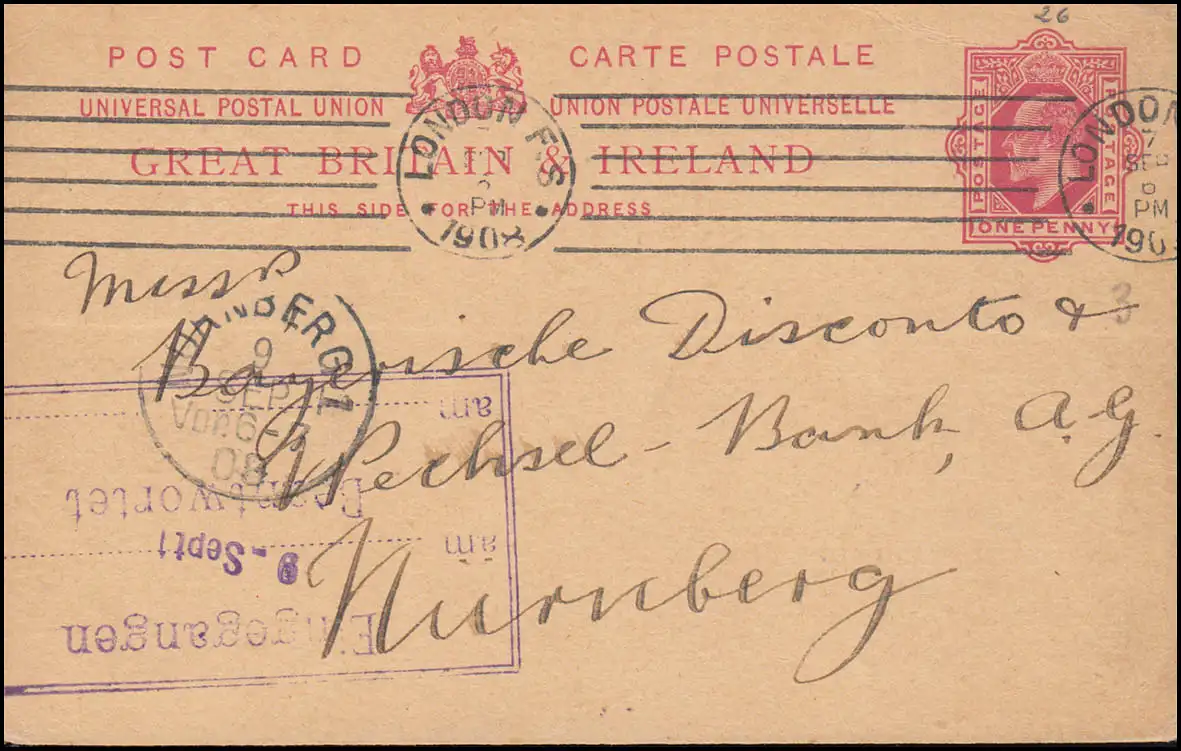 26
POST CARD
CARTE POSTALE
UNIVERSAL POSTAL UNION
UNION POSTALE UNIVERSELLE
GREAT BRITAIN & IRELAND
THIS SIDE FOR THE ADDRESS
POSTAGE
POSTAGE
ONE PENNY
LONDON F.S
PM
1908
LONDON
7
SEP
6
PM
190
Messrs
Bayerische Disconto &
Wechsel-Bank, A.G.
Nürnberg
3
9
SEP
Vor. 6-7
08
Eingegangen
9-Sept
am
Beantwortet
am